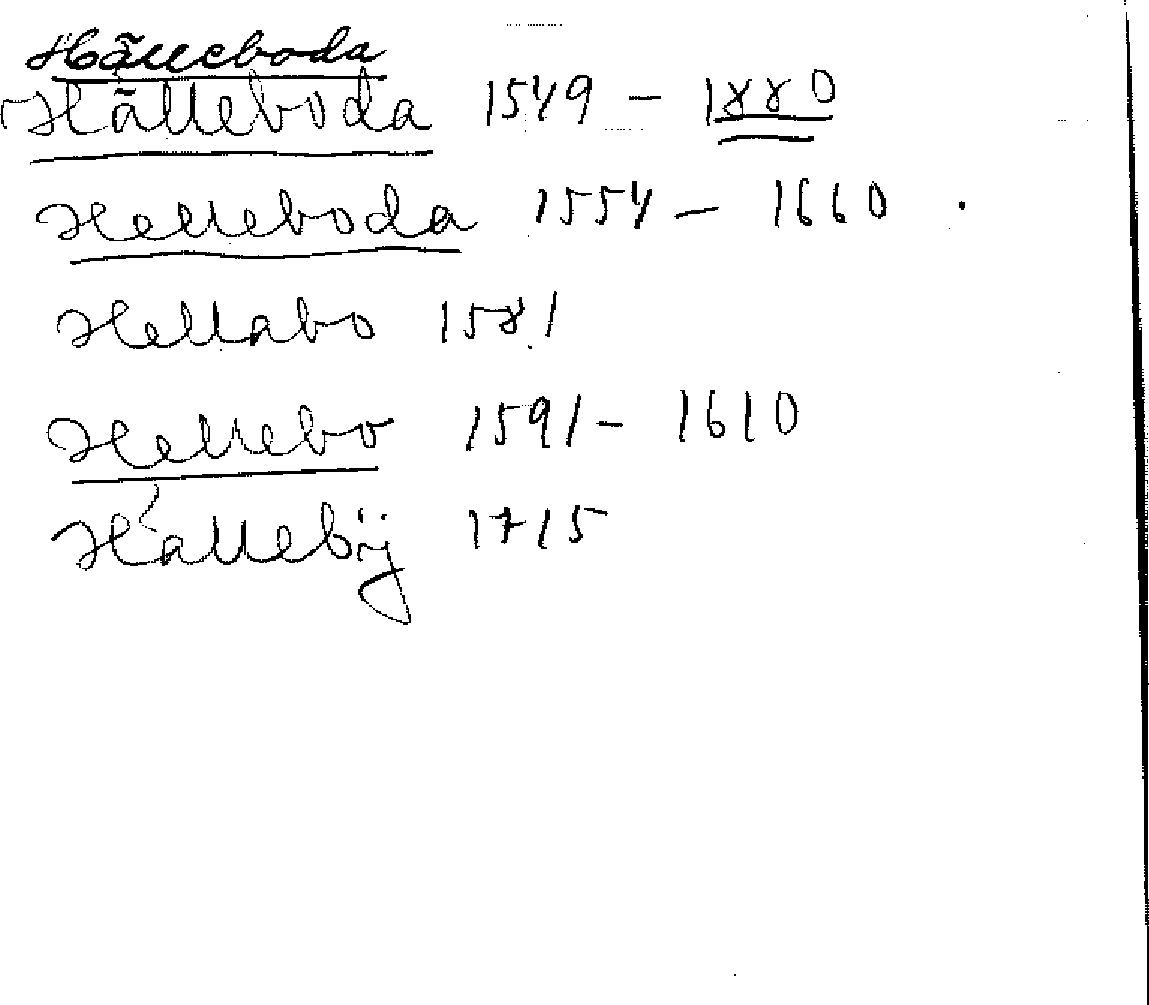 Hälleboda
Hälleboda 1549 – 1880
Helleboda 1554 – 1660
Hellabo 1581
Hellebo 1591 – 1610
Hállebÿ 1715